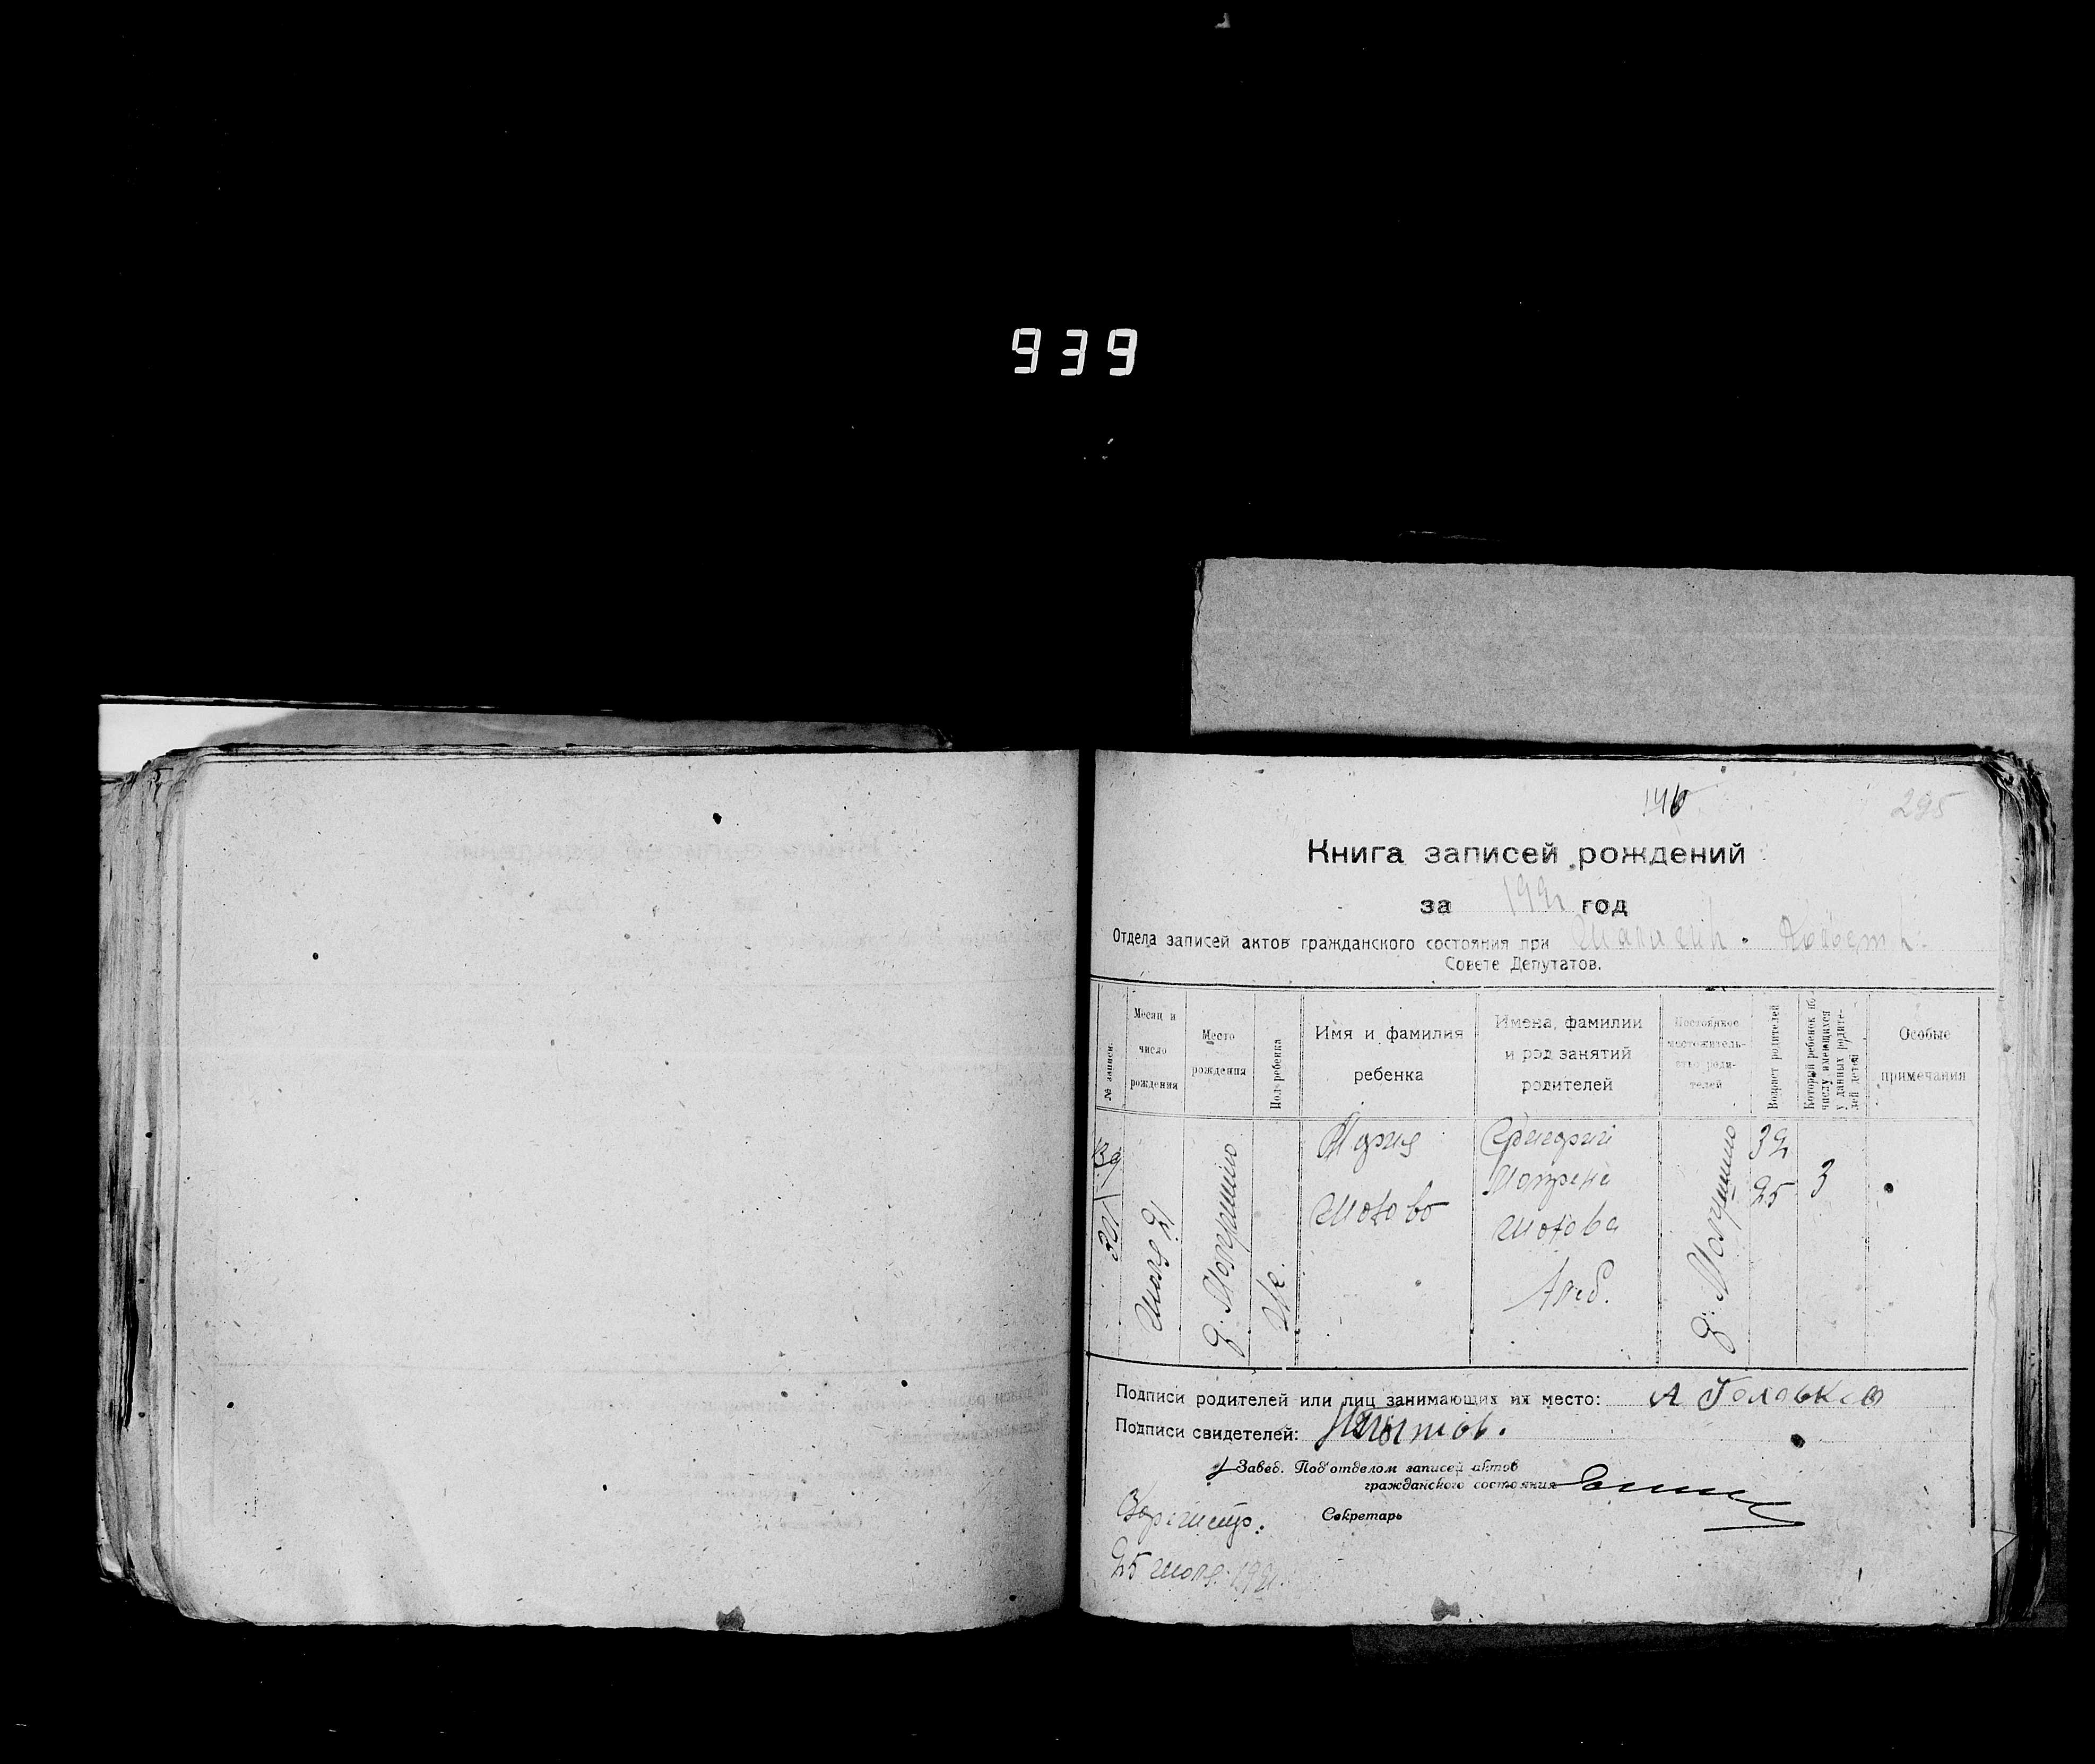 939
146
295
Книга записей рождений
за 1921 год
Отдела записей актов гражданского состояния при
Совете Депутатов.
№ записи.
Месяц и число рождения
Место рождения
Пол ребенка
Имя и фамилия ребенка
Имена, фамилии и род занятий родителей
Постоянное местожительство родителей
Возраст родителей
Который ребенок по числу имеющихся у данных родителей детей
Особые примечания
321
Июля 21
д.
Же.
Мария
Шохово
Григорий
Матрена
Шохова
Хлеб.
д.
32
25
3
Подписи родителей или лиц занимающих их место: А Головкин
Подписи свидетелей:
Завед. Под'отделом записей актов
гражданского состояния
Секретарь
25 июля 1921.